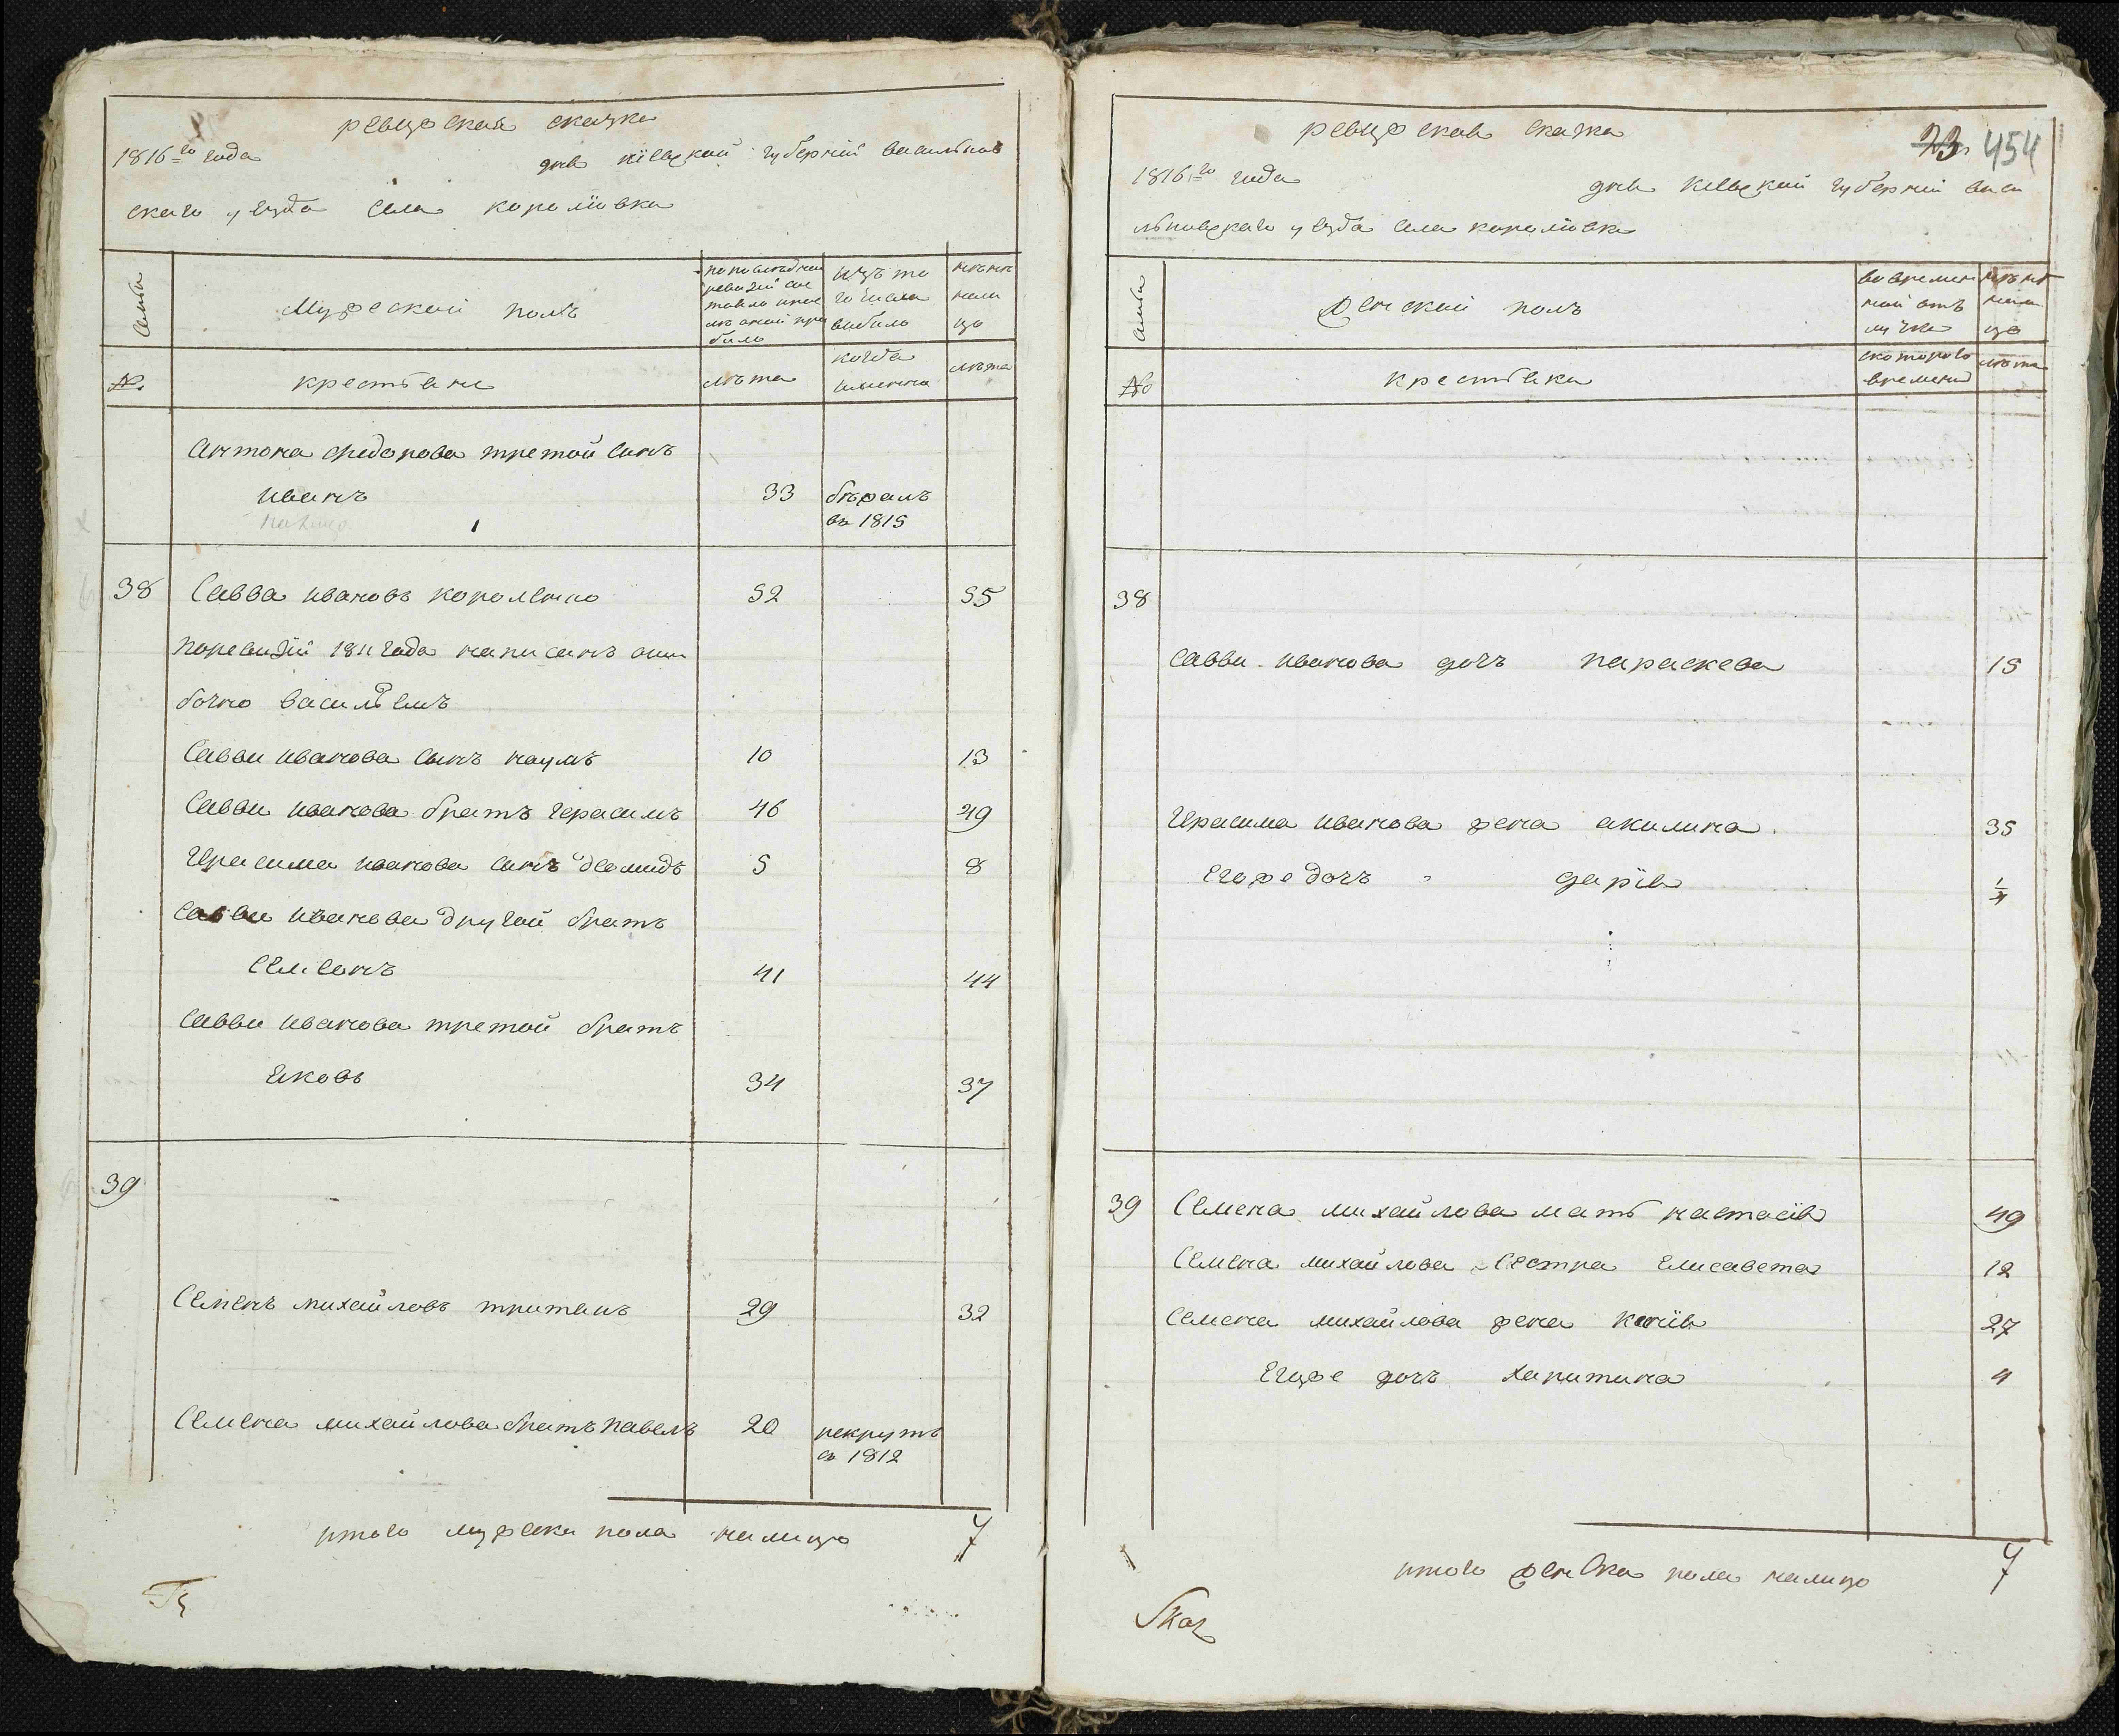 ревизская сказка
1816го года
дня кіевской губерніи васильков
скаго уезда села королiовка
семьи
Мужеской полъ
по последней
ревизіи сос
тояло и после
оной при
было
изъ то
го числа
выбыло
ныне
нали
цо
№.
крестьяне
лѣта
когда
именно
лѣта
Антона федорова третой синъ
иванъ
33
бѣжалъ
въ 1815
38
Савва ивановъ короленко
52
55
поревизіи 1811 года написанъ оши
бочно васильемъ
Савви иванова синъ наумъ
10
13
Савви иванова братъ герасимъ
46
49
Герасима иванова синъ деомидъ
5
8
Савви иванова другой братъ
Семіонъ
41
44
Савви иванова третой братъ
Яковъ
34
37
39
Семенъ михайловъ тритякъ
29
32
Семена михайлова братъ павелъ
20
рекрутъ
въ 1812
итого мужска пола налицо
7
ревизская сказка
23 454
1816го года
дня кіевской губерніи васи
льковскаго уезда села королiовка
семьи
женской полъ
во времен
ной отъ
лучке
ныне
нали
цо
№
крестьянки
скоторого
времени
лѣта
38
Савви иванова дочъ параскева
15
Герасима иванова жена акилина
35
Егоже дочъ дарія
1/4
39
Семена михайлова мать настасія
49
Семена михайлова сестра Елисавета
12
Семена михайлова жена ксенія
27
Егоже дочъ харитина
4
итого женска пола налицо
7
Skaz